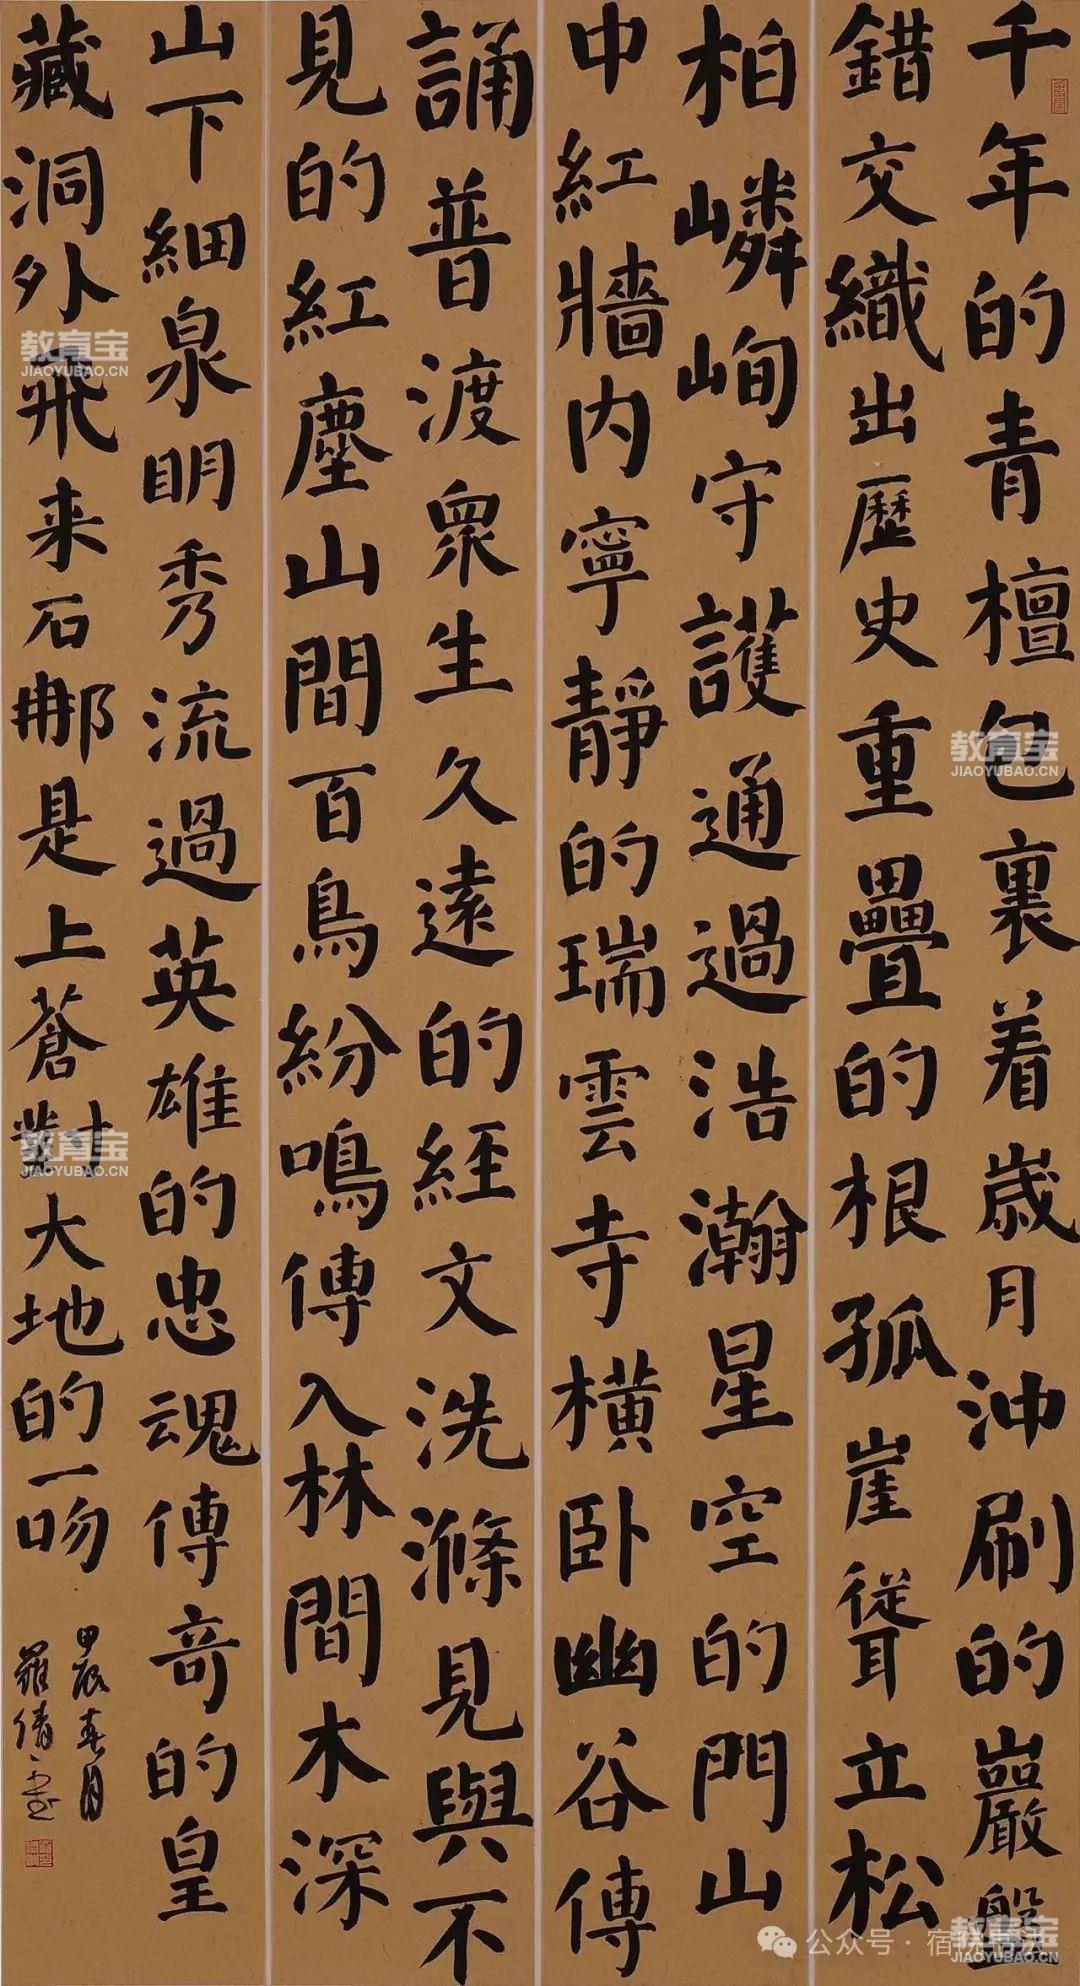 千年的青檀包裹着歲月沖刷的巖盤
錯交織出歷史重疊的根孤崖聳立松
柏嶙峋守護通過浩瀚星空的門山
中紅牆内寧靜的瑞雲寺橫卧幽谷傳
誦普渡眾生久遠的經文洗滌見與不
見的紅塵山間百鳥紛鳴傳入林間木深
山下細泉明秀流過英雄的忠魂傳奇的皇
藏洞外飛来石那是上蒼對大地的一吻
甲辰春月
羅倩書
教育宝
JIAOYUBAO.CN
教育宝
JIAOYUBAO.CN
教育宝
JIAOYUBAO.CN
教育宝
JIAOYUBAO.CN
公众号 · 宿